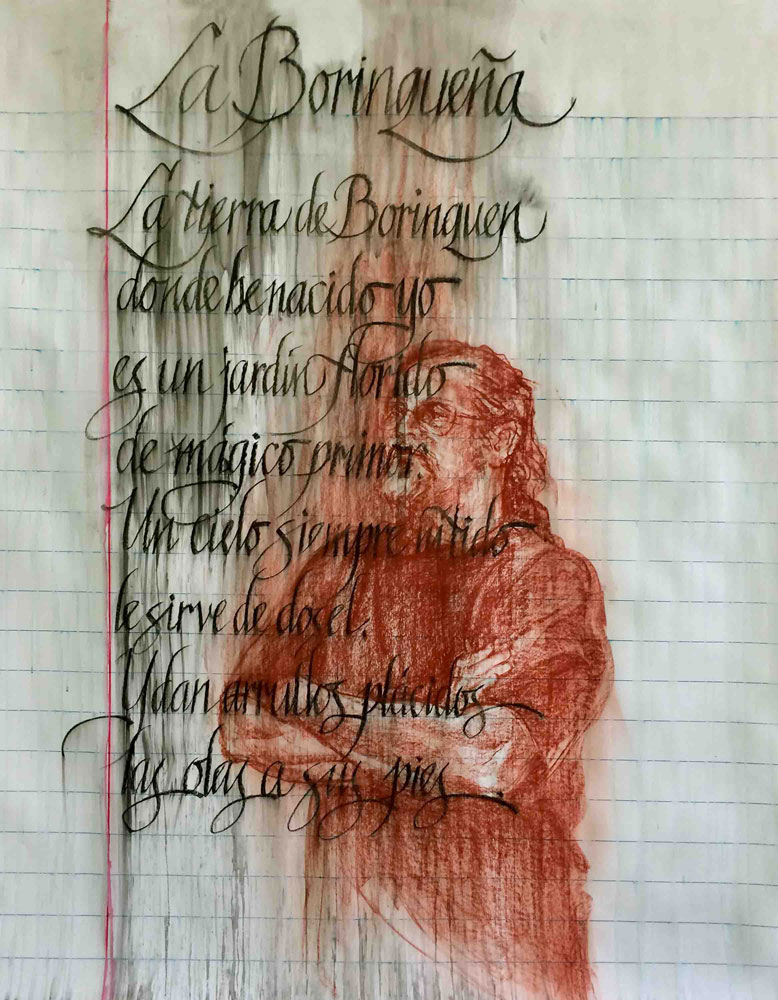 La Borinqueña
La tierra de Borinquen
donde he nacido yo
es un jardín florido
de mágico primor.
Un cielo siempre nítido
le sirve de dosel.
Y dan arrullos plácidos
las olas a sus pies.